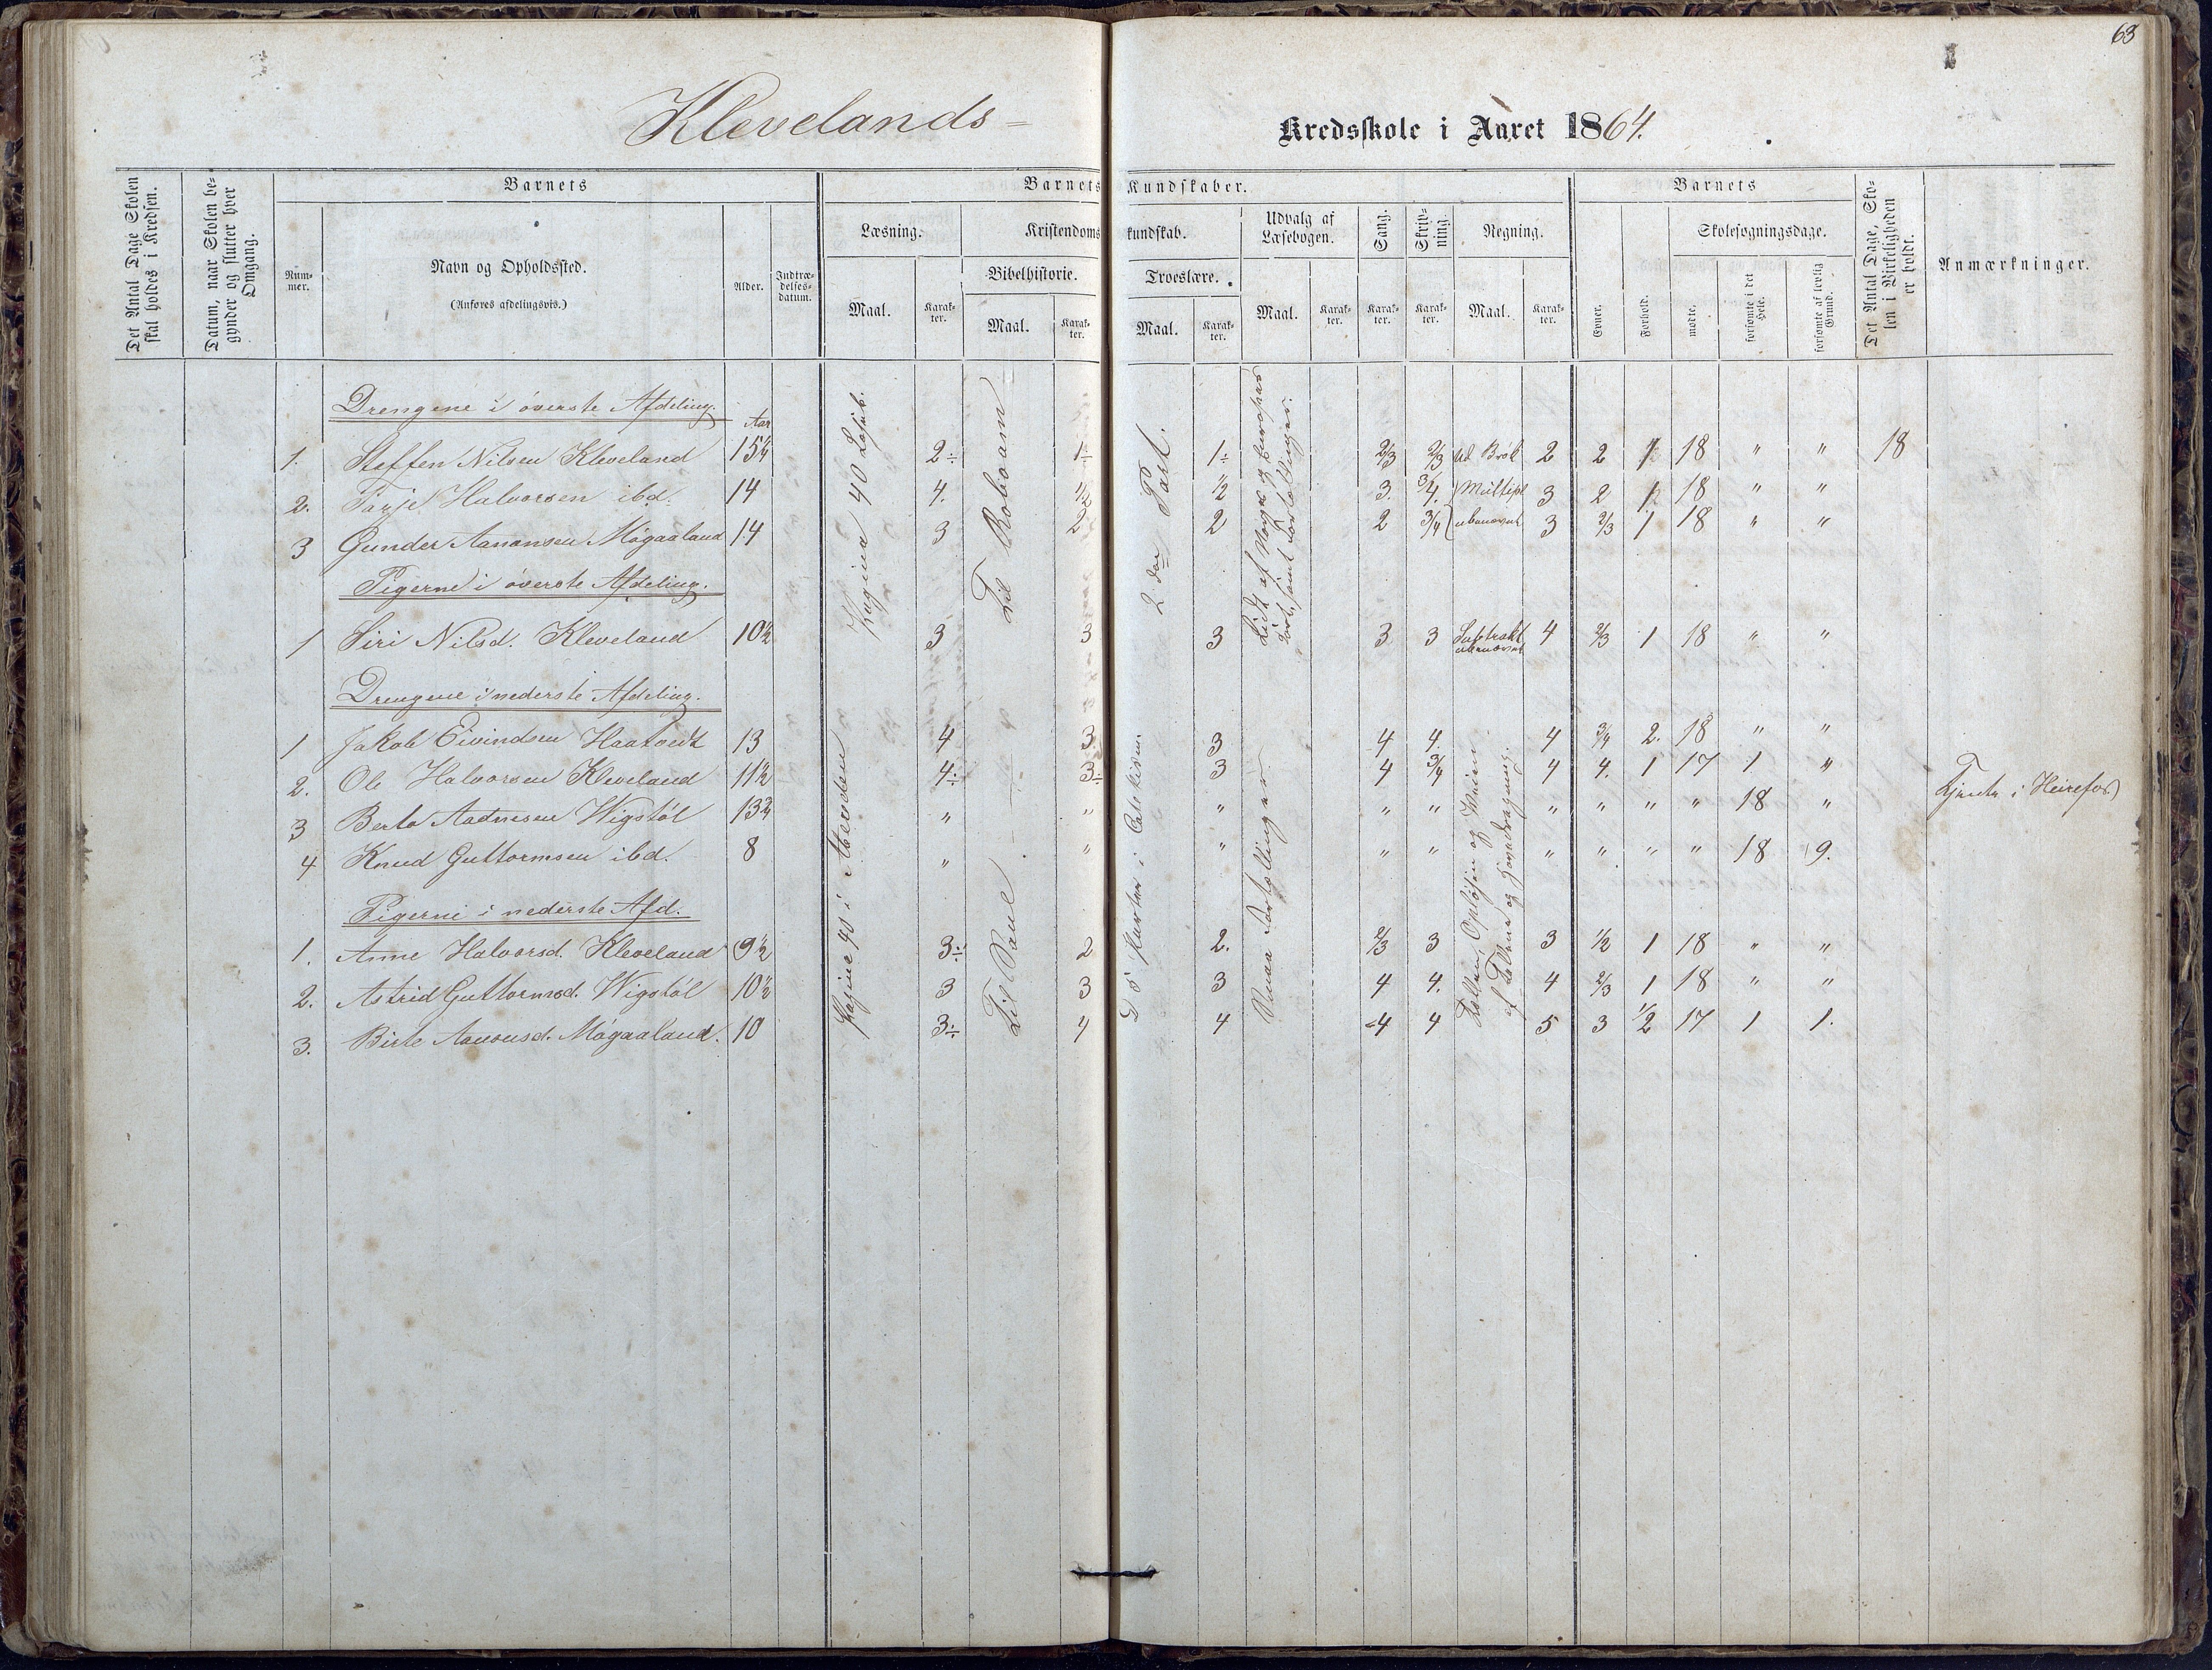 63
Klevelands-
Kredsskole i Aaret 1864.
Det Antal Dage Skolen skal holdes i Kredsen.
Datum, naar Skolen begynder og slutter hver Omgang.
Barnets
Barnets Kundskaber.
Barnets
Det Antal Dage, Skolen i Virkeligheden er holdt.
Anmærkninger.
Nummer.
Navn og Opholdssted.
(Anføres afdelingsvis.)
Alder.
Indtrædelsesdatum.
Læsning.
Kristendomskundskab.
Udvalg af Læsebogen.
Sang.
Skrivning.
Regning.
Skolesøgningsdage.
Bibelhistorie.
Troeslære.
Maal.
Karakter.
Maal.
Karakter.
Maal.
Karakter.
Maal.
Karakter.
Karakter.
Karakter.
Maal.
Karakter.
Evner.
Forhold.
mødte.
forsømte i det Hele.
forsømte af lovlig Grund.
Drengene i øverste Afdeling.
Aar
1. Steffen Nilsen Kleveland 15¼ 2÷ 1÷ 1÷ 2/3 2/3 Brøk 2 2 1 18 " " 18
2. Tarje Halvorsen ibd. 14 4. 1/2 1/2 3. 3/4. Multipl 3 2 1 18 " "
3 Gunder Aanonsen Møgaaland 14 3 2 2 2 3/4 ubenævnt 3 2/3 1 18 " "
Pigerne i øverste Afdeling.
1 Siri Nilsd. Kleveland 10½ 3 3 3 3 3 Subtrakt ubenævnt 4 2/3 1 18 " "
40
Til Roboam
2den Part.
Lidt af Norges og Europas
samt Fortællinger.
Drengene i nederste Afdeling.
1 Jakob Eivindsen Haatvedt 13 4 3 3 4 4. 4 3/4 2. 18 " "
2. Ole Halvorsen Kleveland 11½ 4÷ 3÷ 3 4 3/4 4 4. 1 17 1 "
3 Aadnesen Wigstøl " " " " " " " " " 18 " Tjente i Heirefos
4 Knud Guttormsen ibd. 8 " " " " " " " " " 18 9.
Pigerne i nederste Afd.
1. Anne Halvorsd. Kleveland 9½ 3÷ 2 2. 2/3 3 3 1/2 1 18 " "
2. Astrid Guttormsd. Wigstøl 10½ 3 3 3 4 4. 4 2/3 1 18 " "
3. Birte Aanonsd. Møgaaland. 10 3÷ 4 4 4 4 5 3 1/2 17 1 1.
Pagina 40 i
Til Saul
5 Parter i Katekism.
Smaa Fortællinger
af Tallene og